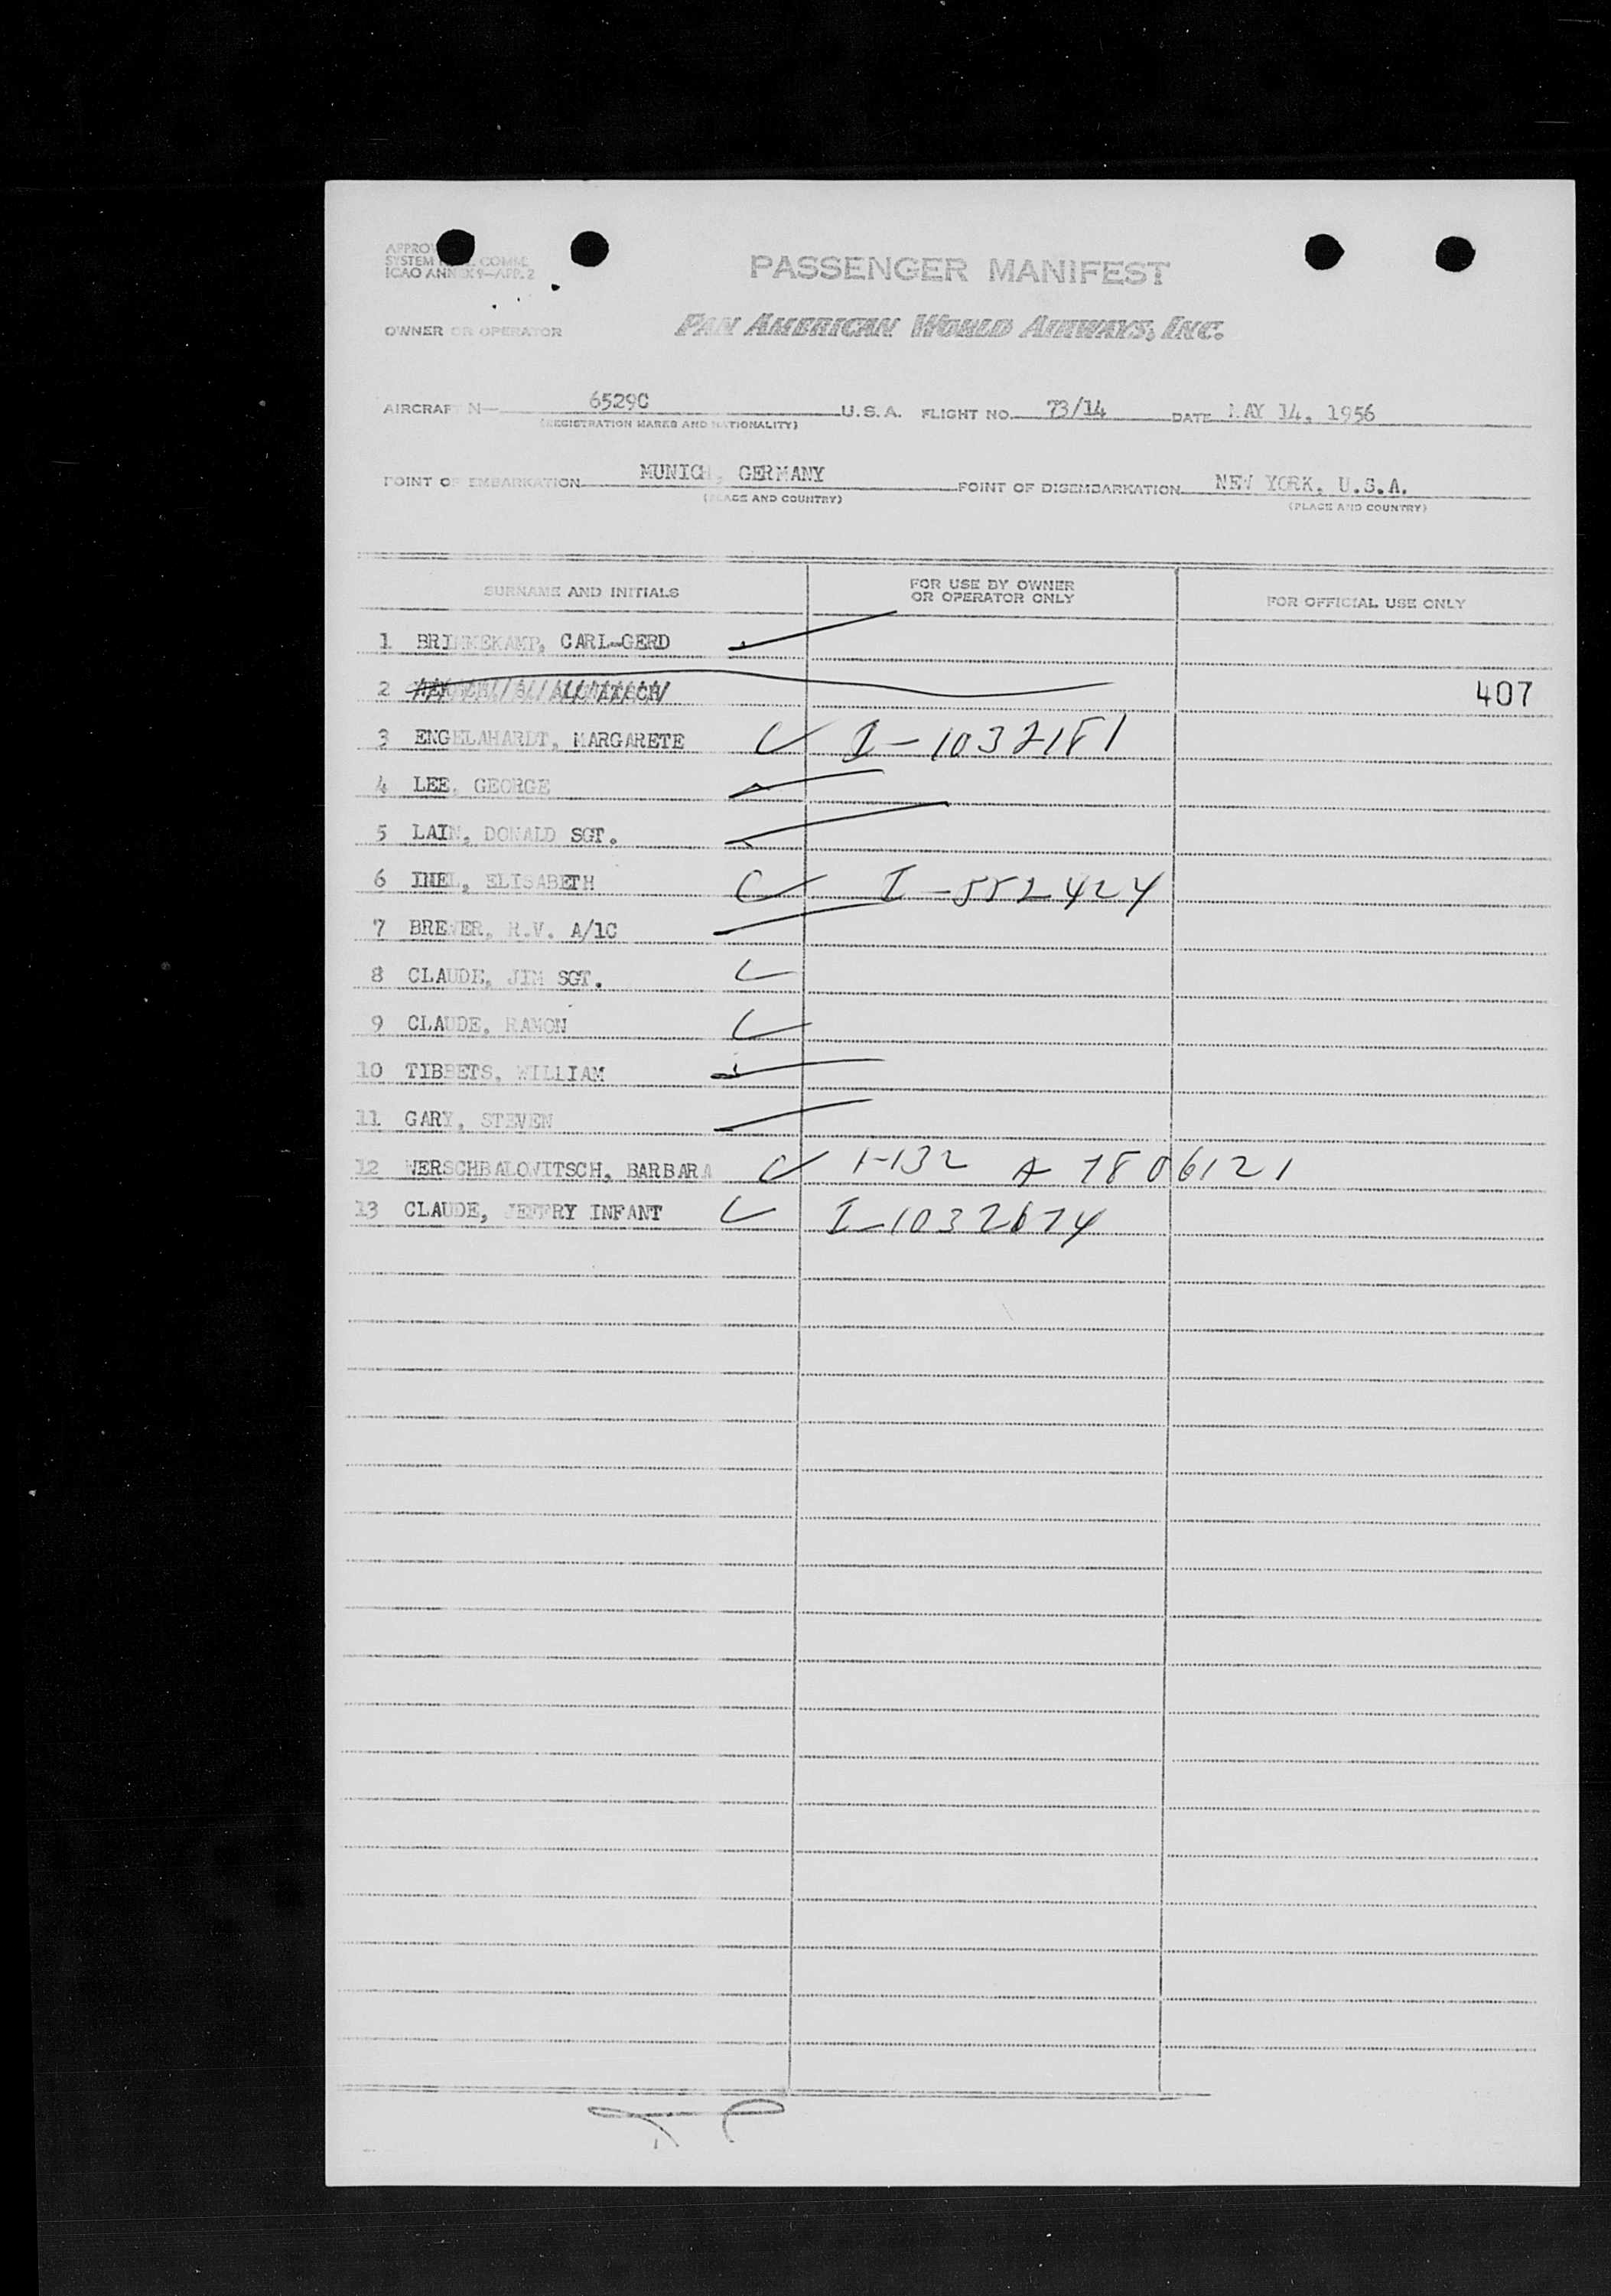 PASSENGER MANIFEST
ICAO ANNEX 9—APP. 2
OWNER OR OPERATOR PAN AMERICAN WORLD AIRWAYS, INC.
AIRCRAFT N— 6529C U.S.A. FLIGHT NO. 73/14 DATE MAY 14, 1956
(REGISTRATION MARKS AND NATIONALITY)
POINT OF EMBARKATION MUNICH, GERMANY POINT OF DISEMBARKATION NEW YORK, U.S.A.
(PLACE AND COUNTRY) (PLACE AND COUNTRY)
SURNAME AND INITIALS FOR USE BY OWNER OR OPERATOR ONLY FOR OFFICIAL USE ONLY
1 BRINKEKAMP, CARL-GERD
2 407
3 ENGELAHARDT, MARGARETE I-1032181
4 LEE, GEORGE
5 LAIN, DONALD SGT.
6 IHEL, ELISABETH I-552424
7 BREWER, R.V. A/1C
8 CLAUDE, JIM SGT.
9 CLAUDE, RAMON
10 TIBBETS, WILLIAM
11 GARY, STEVEN
12 WERSCHBALOWITSCH, BARBARA I-132 A 7806121
13 CLAUDE, JEFFRY INFANT I-1032674